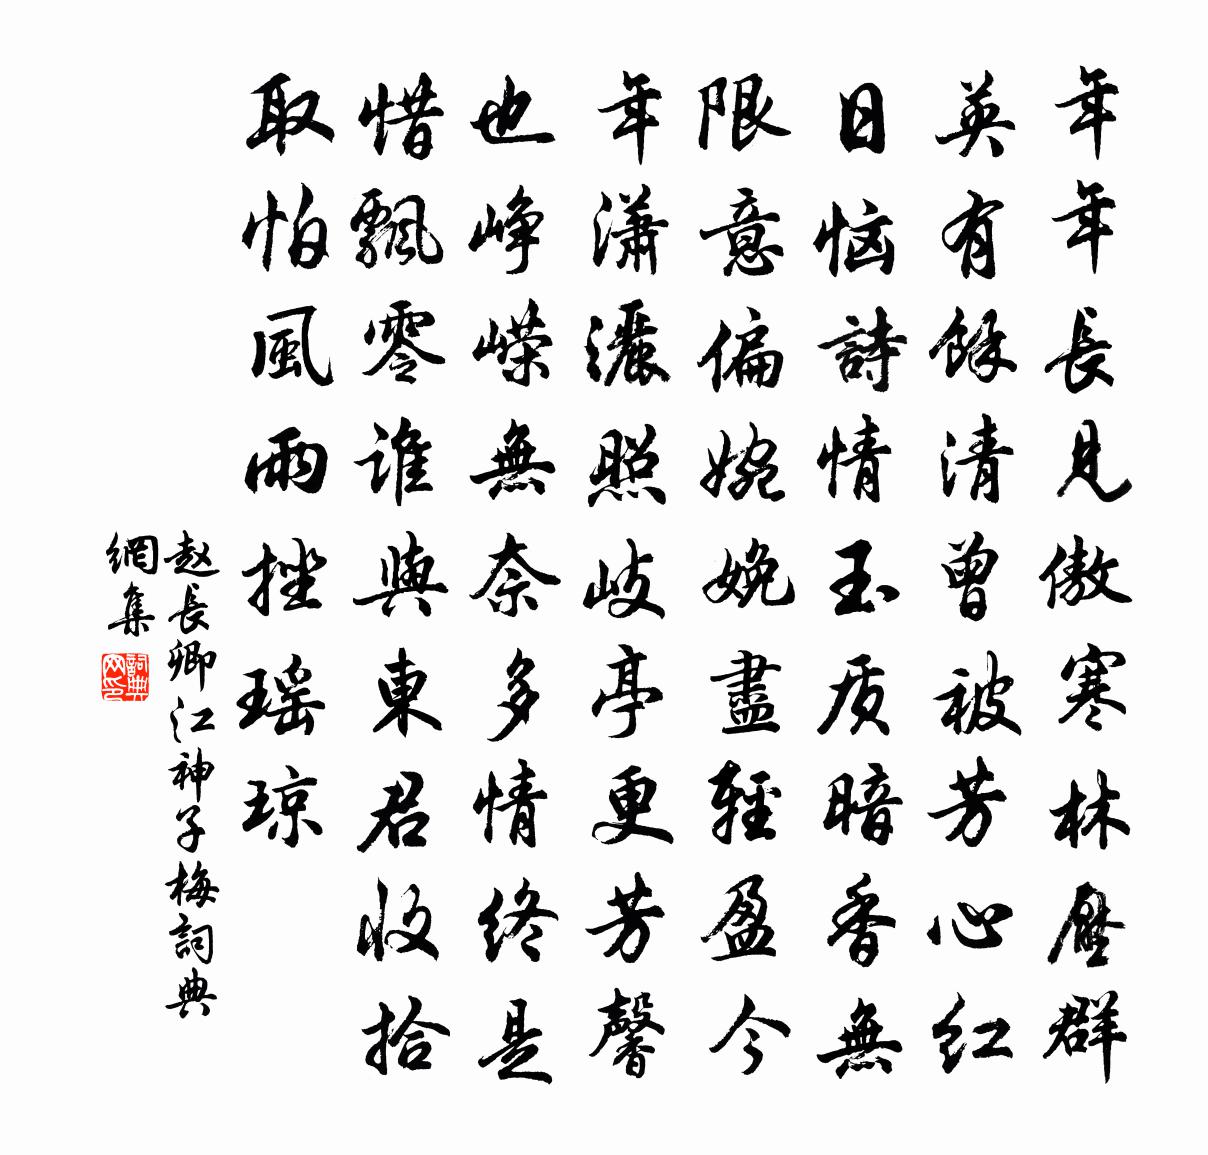 年年長見傲寒林壓群
英有餘清曾被芳心紅
日惱詩情玉质暗香無
限意偏婉娩盡輕盈今
年瀟灑照岐亭更芳馨
也峥嵘無奈多情终是
惜飄零誰與東君收拾
取怕風雨挫瑶琼
赵長卿江神子梅詞典
網集
詞典网印